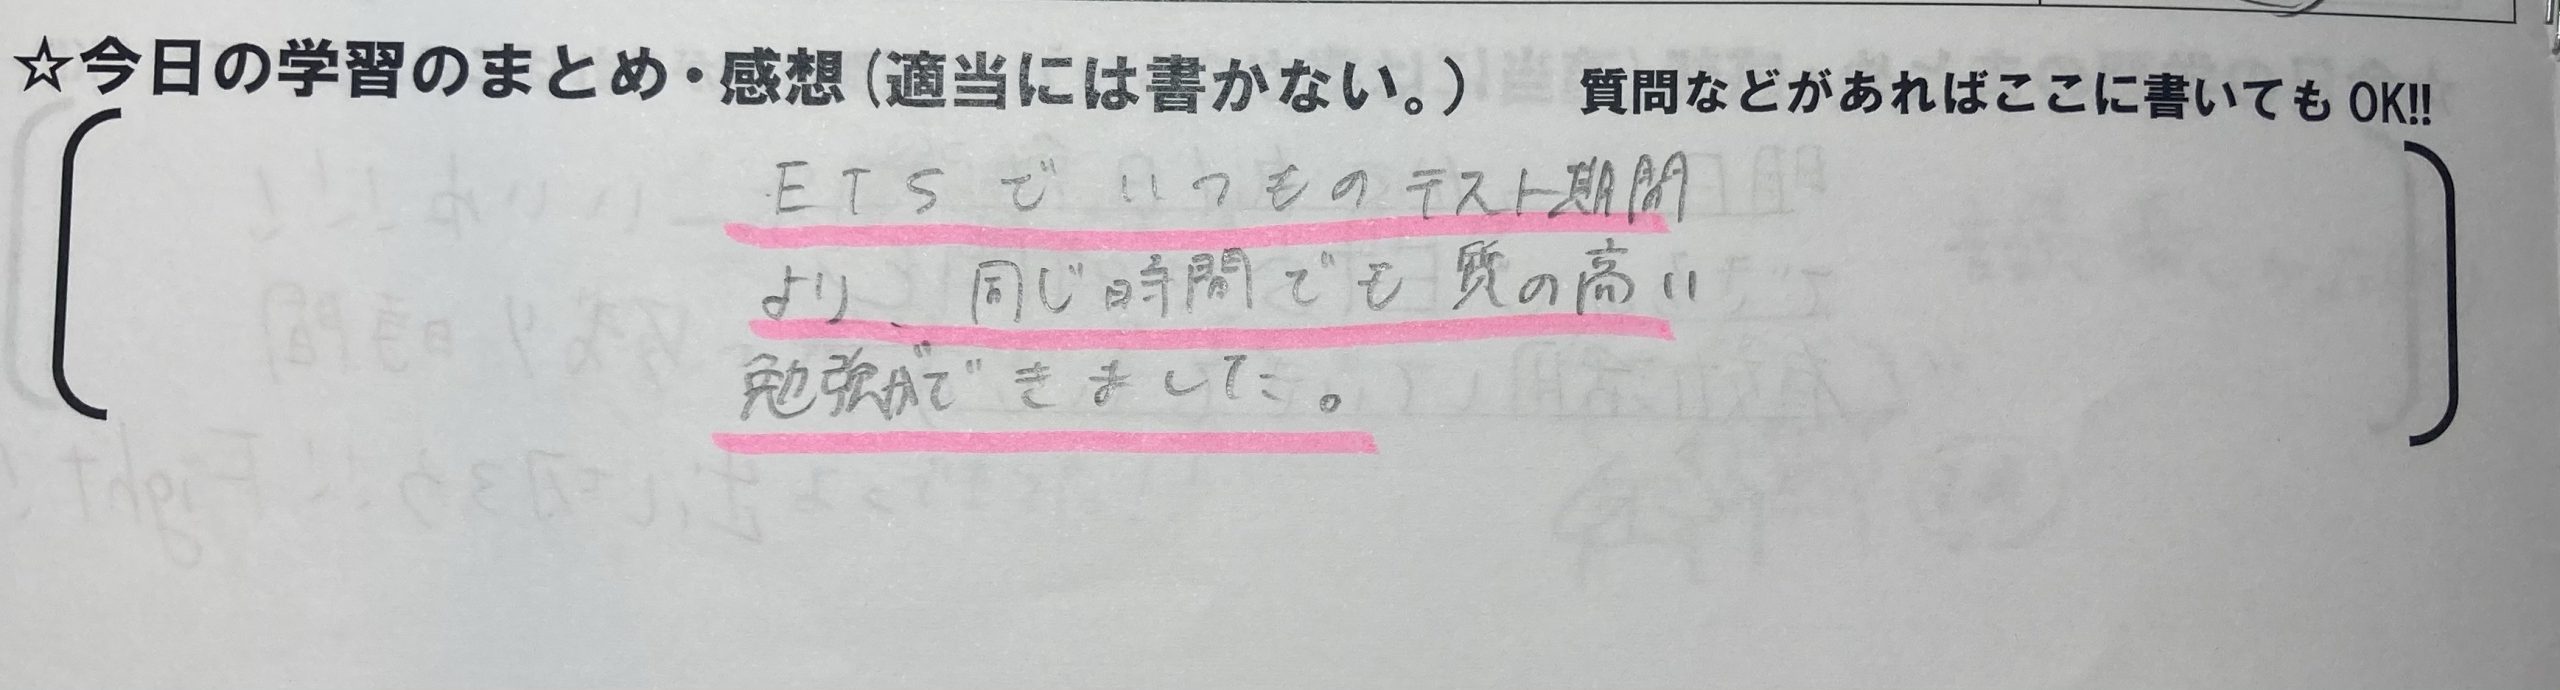 ☆今日の学習のまとめ・感想(適当には書かない。) 質問などがあればここに書いてもOK!!
ETSでいつものテスト期間
より、同じ時間でも質の高い
勉強ができました。